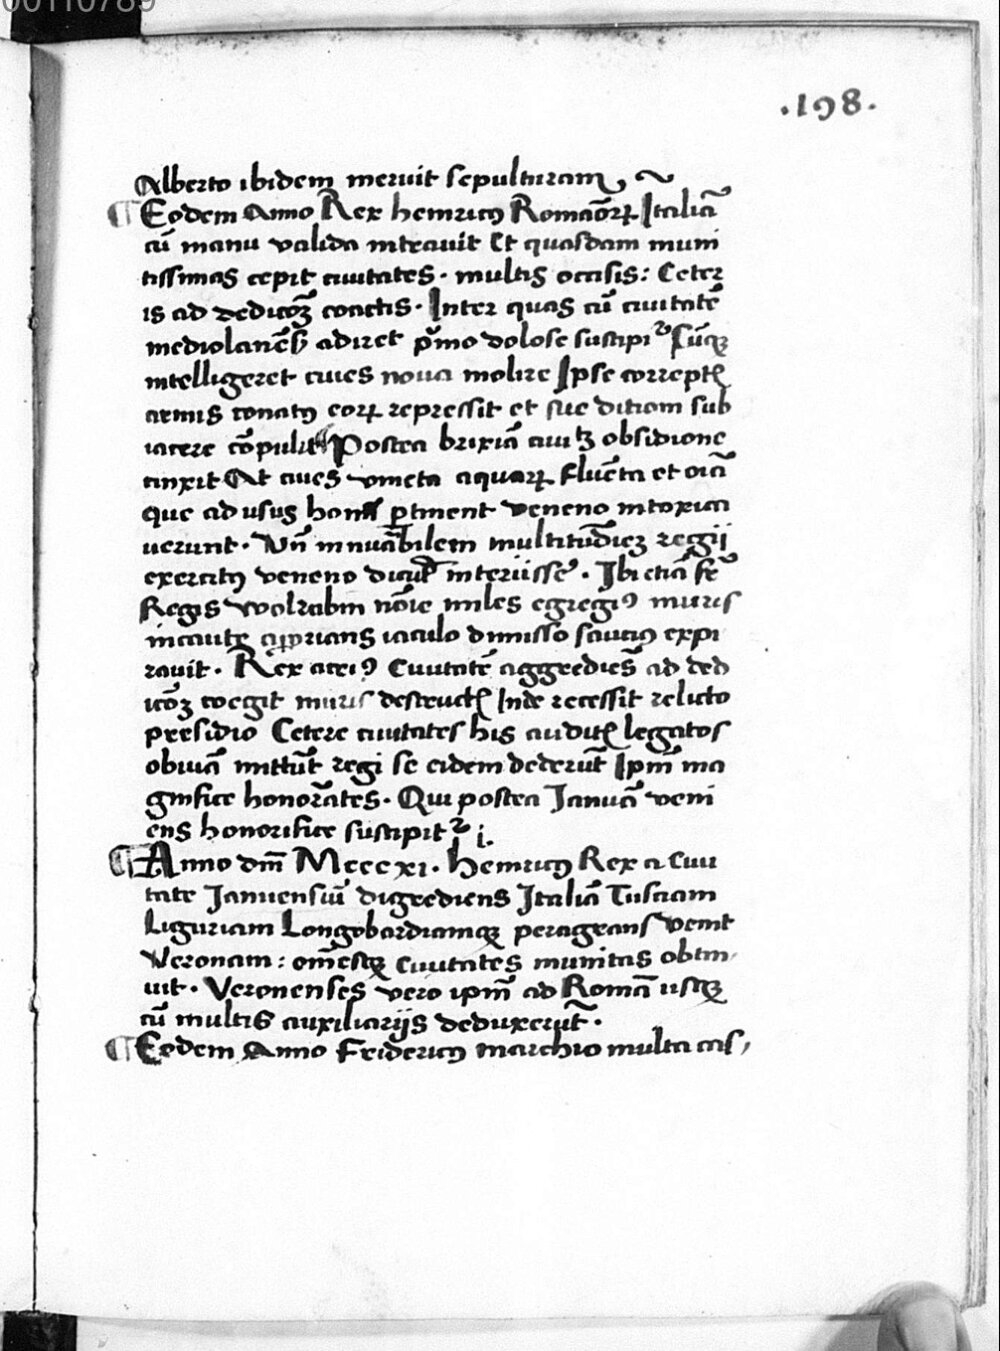 00110789
.198.
Alberto ibidem meruit sepulturam
¶ Eodem Anno Rex hemricꝰ Romãorꝝ Italiã
cũ manu valida intrauit Et quasdam muni
tissimas cepit ciuitates. multis occisis: Ceter
is ad dedicõꝫ coactis. Inter quas cũ ciuitatẽ
mediolanẽs adiret p̃mo dolose suscipiᷣ Cũqꝫ
intelligeret ciues noua molire Ipse correptꝭ
armis conatꝰ eorꝝ repressit et sue ditiom sub
iacere cõpulit Postea brixiã ciuitꝫ obsidione
cinxit At ciues vineta aquarꝝ fluẽta et oiã
que ad usus homĩ ꝑtinent veneno intoxica
uerunt. Vñ innũabilem multitudĩeꝫ regij
exercitꝰ veneno dicũt interiisse. Ibi etiã fr̃
Regis Wolrabin nõie miles egregiꝰ muris
incaute appropians iaculo dimisso sauciꝰ expi
rauit. Rex aciꝰ Ciuitatẽ aggrediẽs ad ded
icõꝫ coegit muris destructꝭ Inde recessit relicto
presidio Cetere ciuitates his auditꝭ legatos
obuiã mittũt regi se eidem dederũt Ipm̃ ma
gnifice honorãtes. Qui postea Januã veni
ens honorifice suscipitᷣ
¶ Anno dm̃ Mcccxi. hemricꝰ Rex a Ciui
tate Januensiũ digrediens Italiã Tusciam
Liguriam Longobardiamqꝫ peragrans venit
Veronam: om̃esqꝫ Ciuitates munitas obtin
uit. Veronenses vero ipm̃ ad Romã usqꝫ
cũ multis auxiliarijs deduxerũt.
¶ Eodem Anno Fridericꝰ marchio multa cas